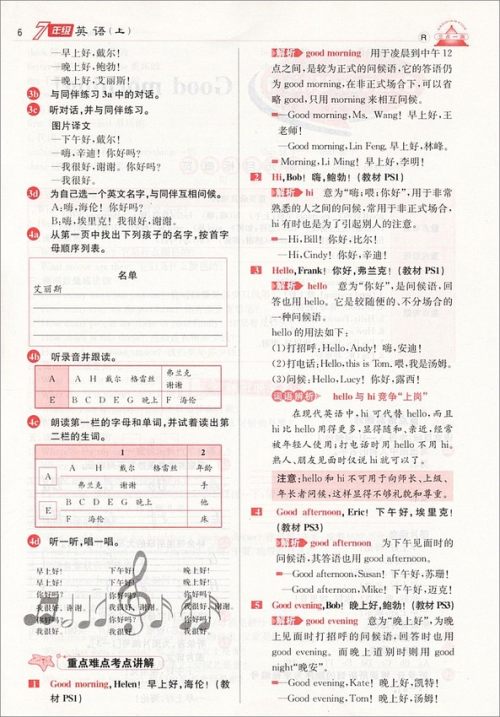 6 7年级 英语(上)
—早上好,戴尔!
—晚上好,鲍勃!
—晚上好,艾丽斯!
3b 与同伴练习 3a 中的对话。
3c 听对话,并与同伴练习。
图片译文
—下午好,戴尔!
—嗨,辛迪!你好吗?
—我很好,谢谢。你好吗?
—我很好。
3d 为自己选一个英文名字,与同伴互相问候。
A:嗨,海伦!你好吗?
B:嗨,埃里克!我很好,谢谢。
4a 从第一页中找出下列孩子的名字,按首字
母顺序列表。
名单
艾丽斯
4b 听录音并跟读。
A A H 戴尔 格雷丝 弗兰克
谢谢
E B C D E G 晚上 F 海伦
4c 朗读第一栏的字母和单词,并试着读出第
二栏的生词。
1 2
A A H 戴尔 格雷丝 年龄
弗兰克 谢谢 手
E B C D E G 晚上 他
F 海伦 床
4d 听一听,唱一唱。
早上好! 下午好! 晚上好!
早上好! 下午好! 晚上好!
你好吗? 你好吗? 你好吗?
我很好,谢谢。 我很好,谢谢。 我很好,谢谢。
你好吗? 你好吗? 你好吗?
我很好。 我很好。 我很好。
重点难点考点讲解
1 Good morning, Helen! 早上好,海伦!(教
材 PS1)
R
解析 good morning 用于凌晨到中午 12
点之间,是较为正式的问候语,它的答语仍
为 good morning,在非正式场合下,可以省
略 good,只用 morning 来相互问候。
—Good morning, Ms. Wang! 早上好,王
老师!
—Good morning, Lin Feng. 早上好,林峰。
Morning, Li Ming! 早上好,李明!
2 Hi, Bob! 嗨,鲍勃!(教材 PS1)
解析 hi 意为“嗨,喂;你好”,用于非常
熟悉的人之间的问候,常用于非正式场合,
hi 有时也是为了引起别人的注意。
—Hi, Bill! 你好,比尔!
—Hi, Cindy! 你好,辛迪!
3 Hello, Frank! 你好,弗兰克!(教材 PS1)
解析 hello 意为“你好”,是问候语,回
答也用 hello。它是较随便的、不分场合的
一种问候语。
hello 的用法如下:
(1)打招呼:Hello, Andy! 嗨,安迪!
(2)打电话:Hello, this is Tom. 喂,我是汤姆。
(3)问候:Hello, Lucy! 你好,露西!
词语辨析 hello 与 hi 竞争“上岗”
在现代英语中,hi 可代替 hello,而且
hi 比 hello 用得更多,显得随和、亲近,经常
被年轻人使用;打电话时用 hello 不用 hi。
熟人、朋友见面时仅说 hi 就可以了。
注意:hello 和 hi 不可用于向师长、上级、
年长者问候,这样显得不够礼貌和尊重。
4 Good afternoon, Eric! 下午好,埃里克!
(教材 PS3)
解析 good afternoon 为下午见面时的
问候语,其答语也用 good afternoon。
—Good afternoon, Susan! 下午好,苏珊!
—Good afternoon, Mike! 下午好,迈克!
5 Good evening, Bob! 晚上好,鲍勃!(教材 PS3)
解析 good evening 意为“晚上好”,为晚
上见面时打招呼的问候语,回答时也用
good evening。而晚上道别时则用 good
night“晚安”。
—Good evening, Kate! 晚上好,凯特!
—Good evening, Tom! 晚上好,汤姆!